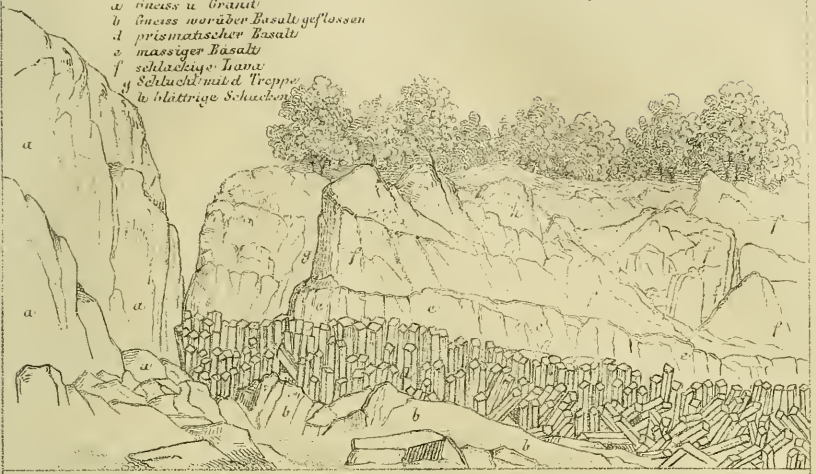 a Gneiss u Granit
b Gneiss worüber Basalt geflossen
d prismatischer Basalt
e massiger Basalt
f schlackige Lava
g Schlucht mit d Treppe
h blättrige Schacken
a
h
f
a
g
f
a
e
e
f
a
b
b
b